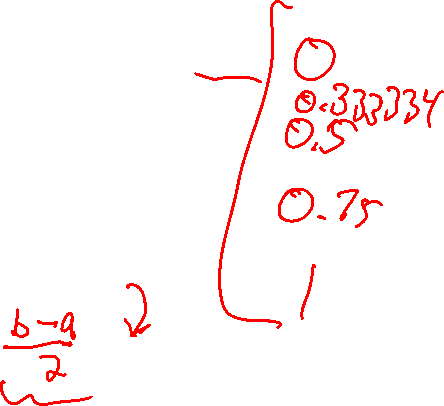 0
0.333334
0.5
0.75
1
b-a
2